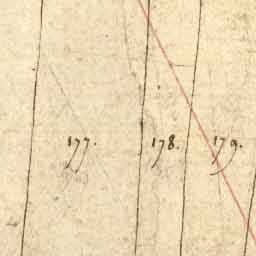 177. 178. 179.